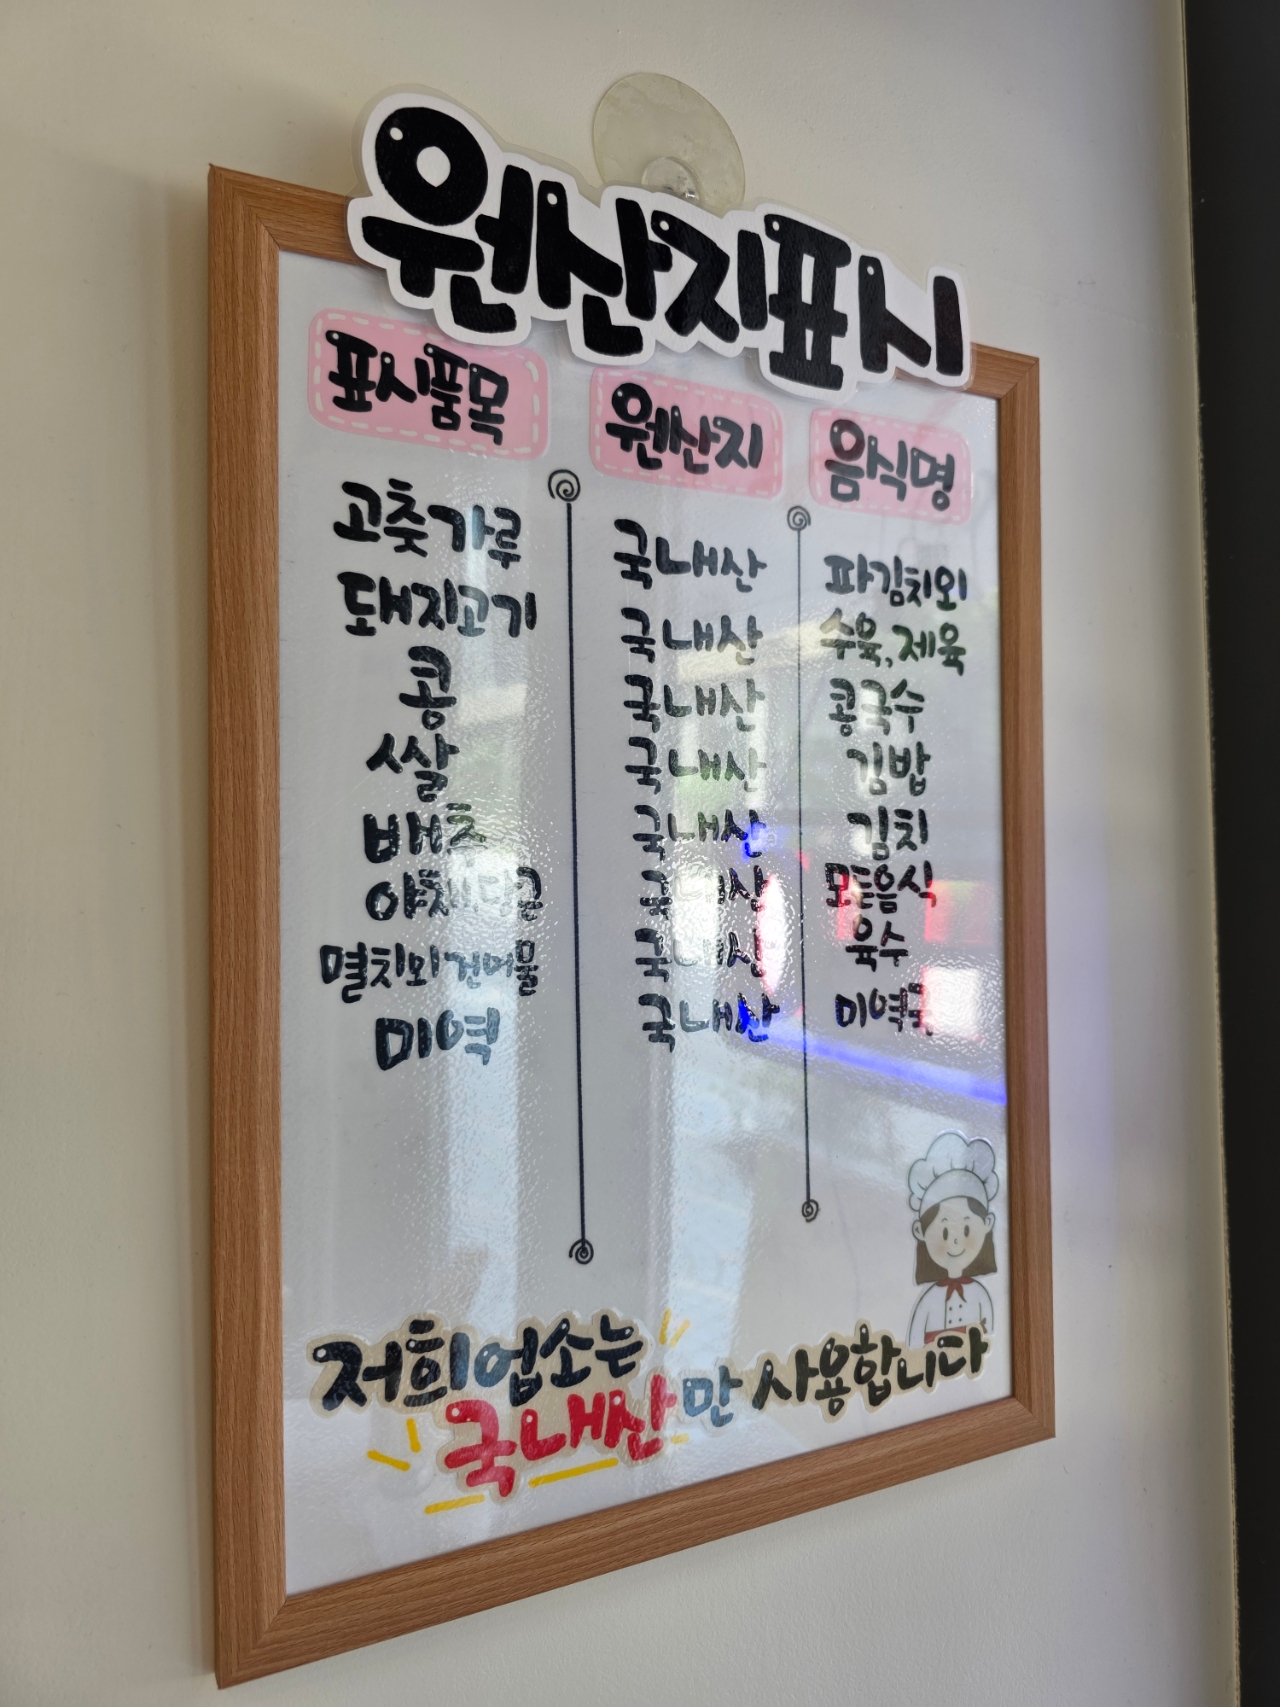 원산지표시
표시품목 원산지 음식명
고춧가루 국내산 파김치외
돼지고기 국내산 수육, 제육
콩 국내산 콩국수
쌀 국내산 김밥
배추 국내산 김치
야채 국내산 모든음식
멸치외건어물 국내산 육수
미역 국내산 미역국
저희업소는
국내산만 사용합니다